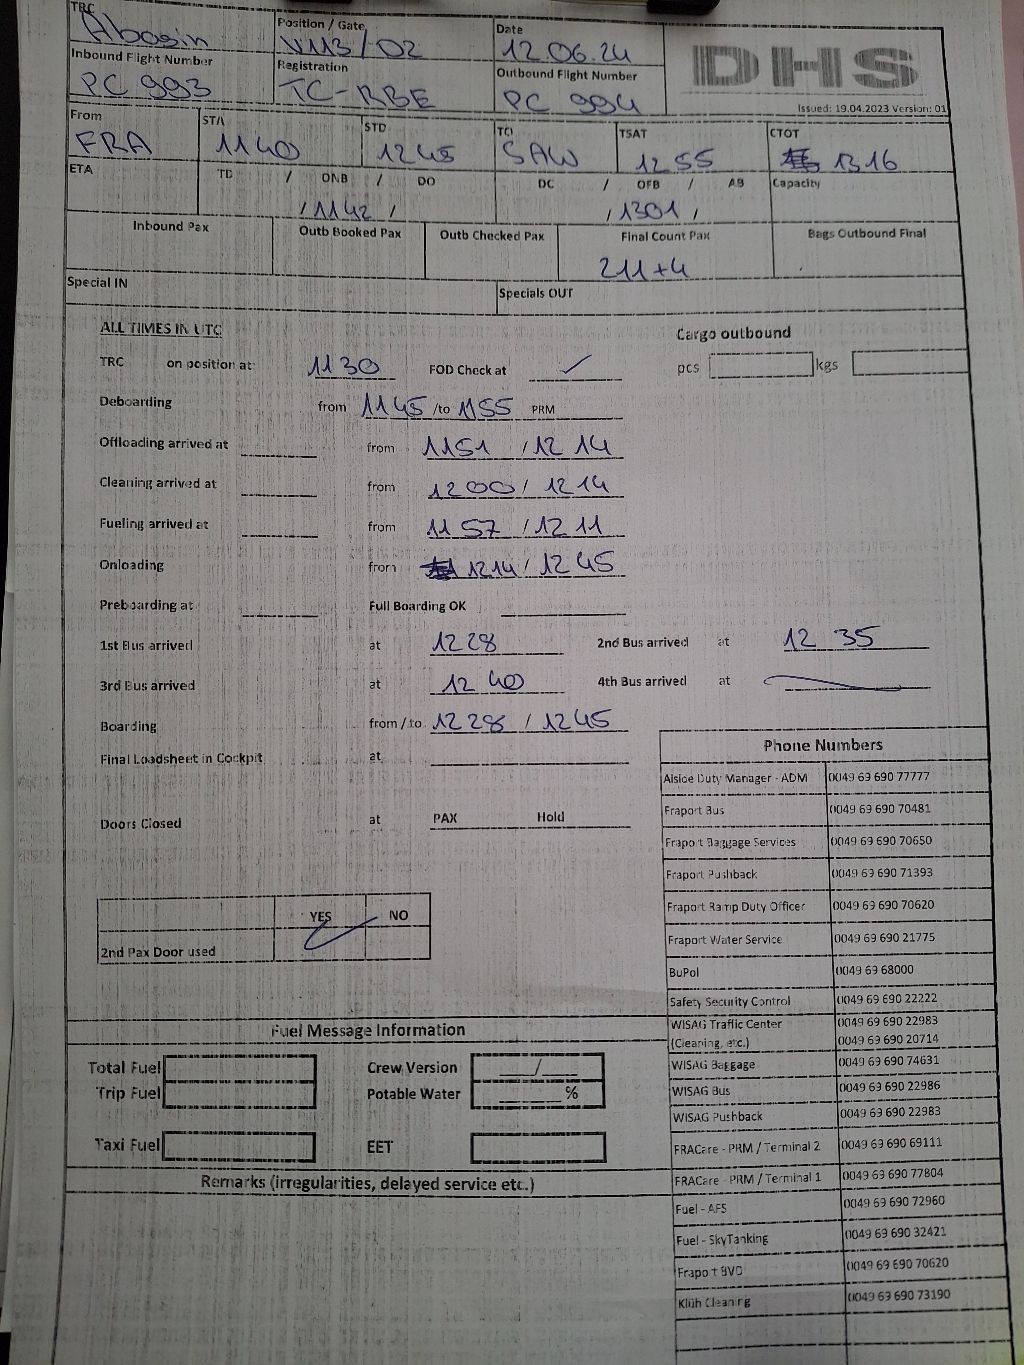 TRC Position / Gate Date
Abasin VM3/02 12.06.24 DHS
Inbound Flight Number Registration Outbound Flight Number
PC 993 TC-RBE PC 994 Issued: 19.04.2023 Version: 01
From STA STD TO TSAT CTOT
FRA 1140 1245 SAW 1255 1316
ETA TD / ONB / DO DC / OFB / AB Capacity
/ 1142 / / 1301 /
Inbound Pax Outb Booked Pax Outb Checked Pax Final Count Pax Bags Outbound Final
211+4
Special IN Specials OUT
ALL TIMES IN UTC Cargo outbound
TRC on position at 1130 FOD Check at ✓ pcs kgs
Deboarding from 1145 /to 1155 PRM
Offloading arrived at from 1151 / 1214
Cleaning arrived at from 1200 / 1214
Fueling arrived at from 1157 / 1211
Onloading from 1214 / 1245
Preboarding at Full Boarding OK
1st Bus arrived at 1228 2nd Bus arrived at 12 35
3rd Bus arrived at 12 40 4th Bus arrived at
Boarding from / to 1228 / 1245
Final Loadsheet in Cockpit at
Doors Closed at PAX Hold
YES NO
2nd Pax Door used ✓
Phone Numbers
Aiside Duty Manager - ADM 0049 69 690 77777
Fraport Bus 0049 69 690 70481
Fraport Baggage Services 0049 69 690 70650
Fraport Pushback 0049 69 690 71393
Fraport Ramp Duty Officer 0049 69 690 70620
Fraport Water Service 0049 69 690 21775
BuPol 0049 69 68000
Safety Security Control 0049 69 690 22222
WISAG Traffic Center 0049 69 690 22983
(Cleaning, etc.) 0049 69 690 20714
WISAG Baggage 0049 69 690 74631
WISAG Bus 0049 69 690 22986
WISAG Pushback 0049 69 690 22983
FRACare - PRM / Terminal 2 0049 69 690 69111
FRACare - PRM / Terminal 1 0049 69 690 77804
Fuel - AFS 0049 69 690 72960
Fuel - SkyTanking 0049 69 690 32421
Fraport BVD 0049 69 690 70620
Klüh Cleaning 0049 69 690 73190
Fuel Message Information
Total Fuel Crew Version ____/____
Trip Fuel Potable Water ______ %
Taxi Fuel EET
Remarks (irregularities, delayed service etc.)